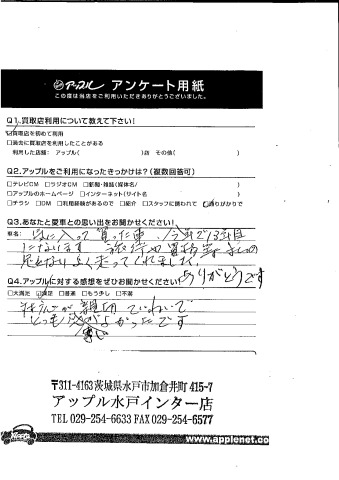 アップル アンケート用紙
この度は当店をご利用いただきありがとうございました。
Q1.買取店利用について教えて下さい!
☑買取店を初めて利用
□過去に買取店を利用したことがある
利用した店舗: アップル( )店 その他( )
Q2.アップルをご利用になったきっかけは?(複数回答可)
□テレビCM □ラジオCM □新聞・雑誌(媒体名/ )
□アップルのホームページ □インターネット(サイト名 )
□チラシ □DM □利用経験があるので □紹介 □スタッフに誘われて ☑通りがかりで
Q3.あなたと愛車との思い出をお聞かせください!
車名: 気に入って買った車 今年で13年目
になります
よく走ってくれました
ありがとうです
Q4.アップルに対する感想をぜひお聞かせください!
□大満足 ☑満足 □普通 □もう少し □不満
が親切でていねいで
とても感じがよかったです
〒311-4163茨城県水戸市加倉井町415-7
アップル水戸インター店
TEL 029-254-6633 FAX 029-254-6577
www.applenet.co